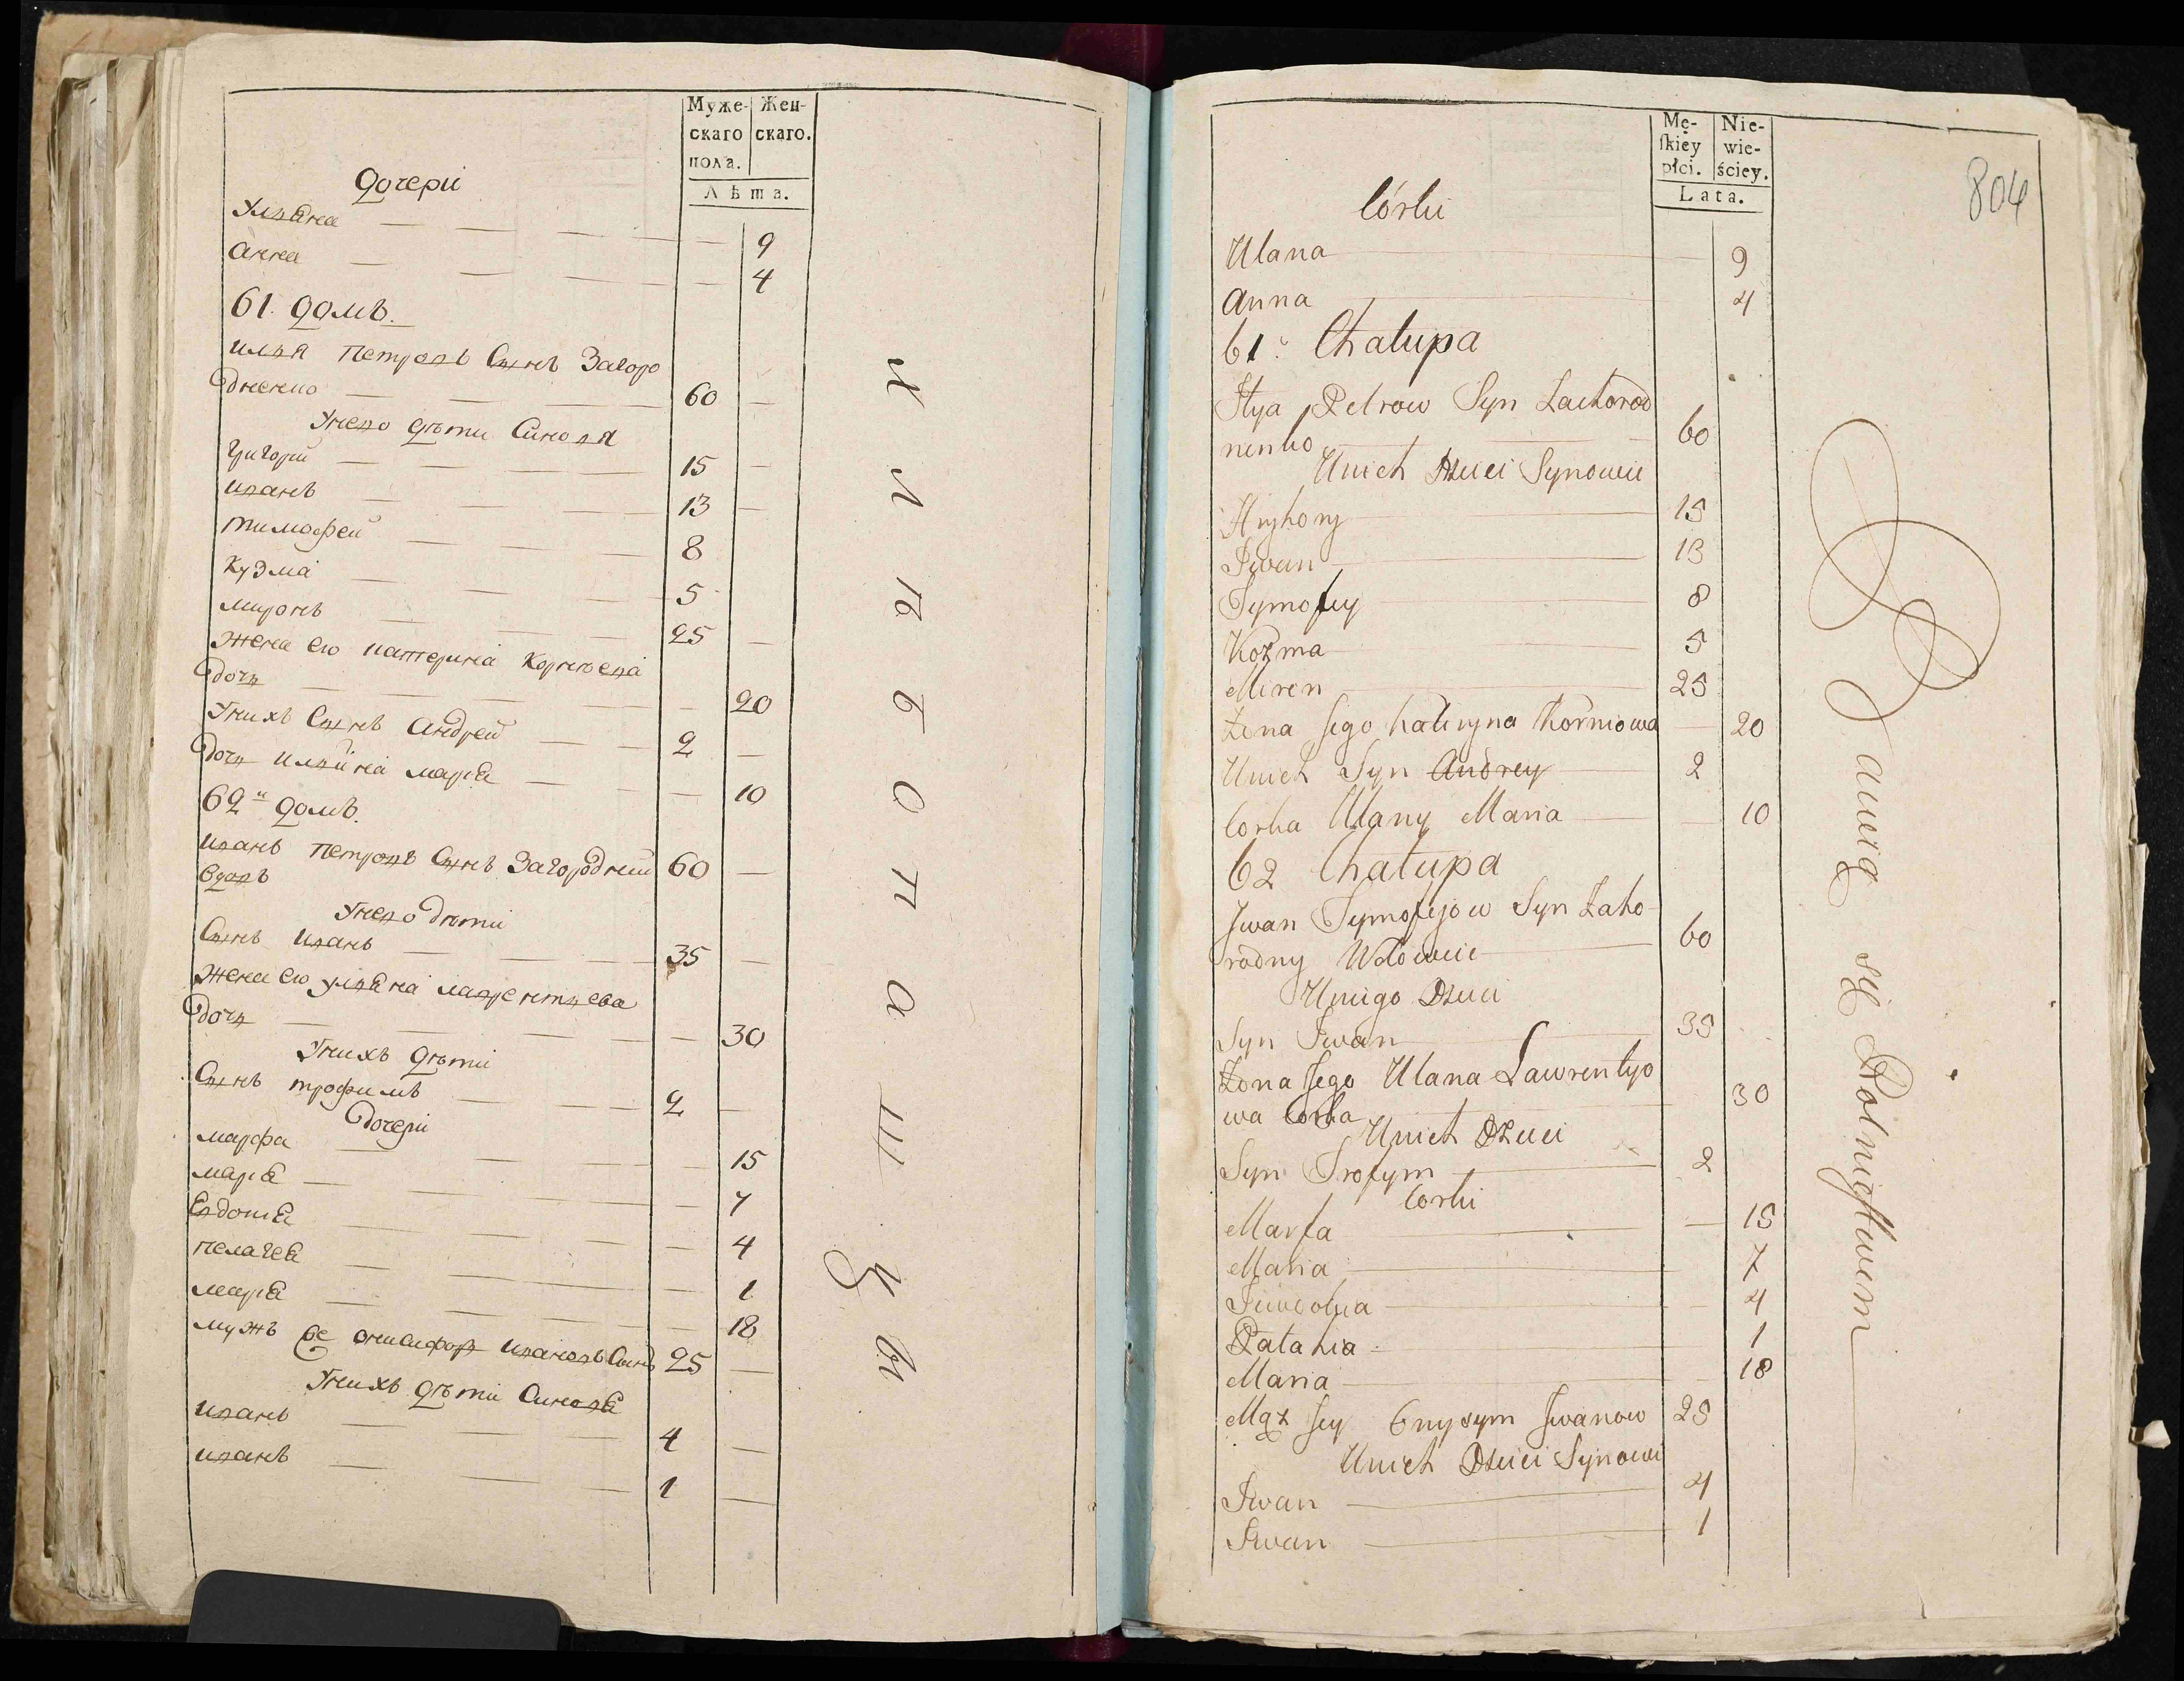 Муже- Жен-
скаго скаго.
пола.
Лѣта.
Дочери
Ульяна — — — — 9
Анна — — — — 4
61. Домъ.
Илья Петровъ Сынъ Загоро
дненко — — — 60 —
Унево дѣти Синовя
Григорій — — — 15 —
Иванъ — — — 13 —
Тимофей — — — 8
Кузма — — — 5
Миронъ — — — 25 —
Жена ево катерина Корнѣева
дочь — — — — 20
Унихъ Сынъ Андрей — — 2 —
дочь Ильина марья — — — 10
62й Домъ.
Иванъ Петровъ Сынъ Загородний 60 —
вдовъ
Унево дѣти
Сынъ Иванъ — — — 35 —
Жена ево ульяна лаврентьева
дочь — — — — 30
Унихъ дѣти
Сынъ трофимъ — — — 2 —
дочери
марфа — — — — 15
марья — — — — 7
Евдокия — — — — 4
пелагея — — — — 1
марья — — — — 18
мужъ Ее онисифор ивановъ Сынъ 25 —
Унихъ дѣти Синовя
Иванъ — — — 4 —
иванъ — — — 1 —
804
Mę- Nie-
skiey wie-
płci. ściey.
Lata.
Córki
Ulana — 9
Anna 4
61. Chałupa
Ilya Petrow Syn Zachorod
nenko 60
Unich Dzieci Synowie
Hryhory 15
Iwan 13
Tymofiy 8
Kozma 5
Miron 25
Żona Jego Katyryna Korniowa — 20
Unich Syn Andrey 2
Corka Ulany Maria — 10
62 Chałupa
Jwan Tymofijow Syn Zaho-
rodny Wdowiec 60
Uniego Dzieci
Syn Iwan 35
Żona Jego Ulana Lawrentyo
wa Corka 30
Unich Dzieci
Syn Trofym 2
Corki
Marfa — 15
Maria 7
4
1
Maria 18
Mąż Jey Onysym Jwanow 25
Unich Dzieci Synowie
Iwan 4
Iwan 1